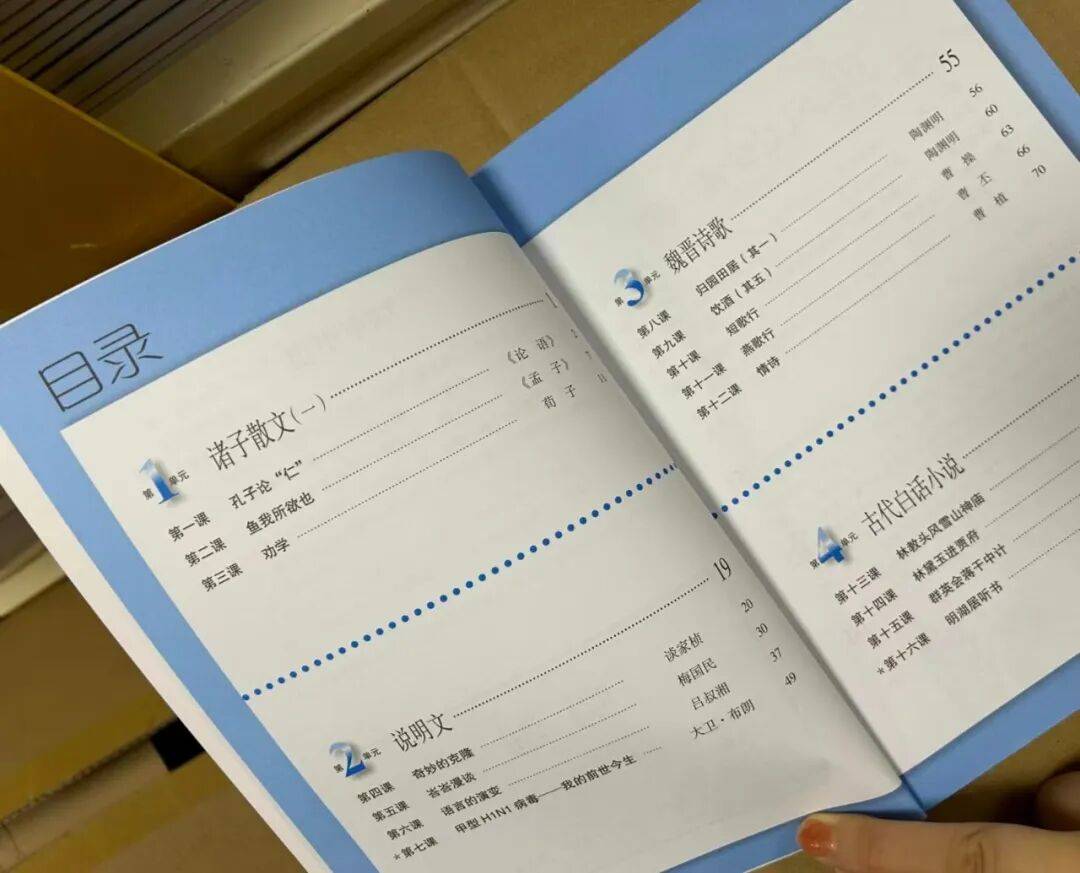 目录
第1单元 诸子散文(一) 1
第一课 孔子论“仁” 《论语》 2
第二课 鱼我所欲也 《孟子》
第三课 劝学 荀子 11
第2单元 说明文 19
第四课 奇妙的克隆 谈家桢 20
第五课 峇峇漫谈 梅国民 30
第六课 语言的演变 吕叔湘 37
*第七课 甲型H1N1病毒——我的前世今生 大卫·布朗 49
第3单元 魏晋诗歌 55
第八课 归园田居(其一) 陶渊明 56
第九课 饮酒(其五) 陶渊明 60
第十课 短歌行 曹操 63
第十一课 燕歌行 曹丕 66
第十二课 情诗 曹植 70
第4单元 古代白话小说
第十三课 林教头风雪山神庙
第十四课 林黛玉进贾府
第十五课 群英会蒋干中计
*第十六课 明湖居听书